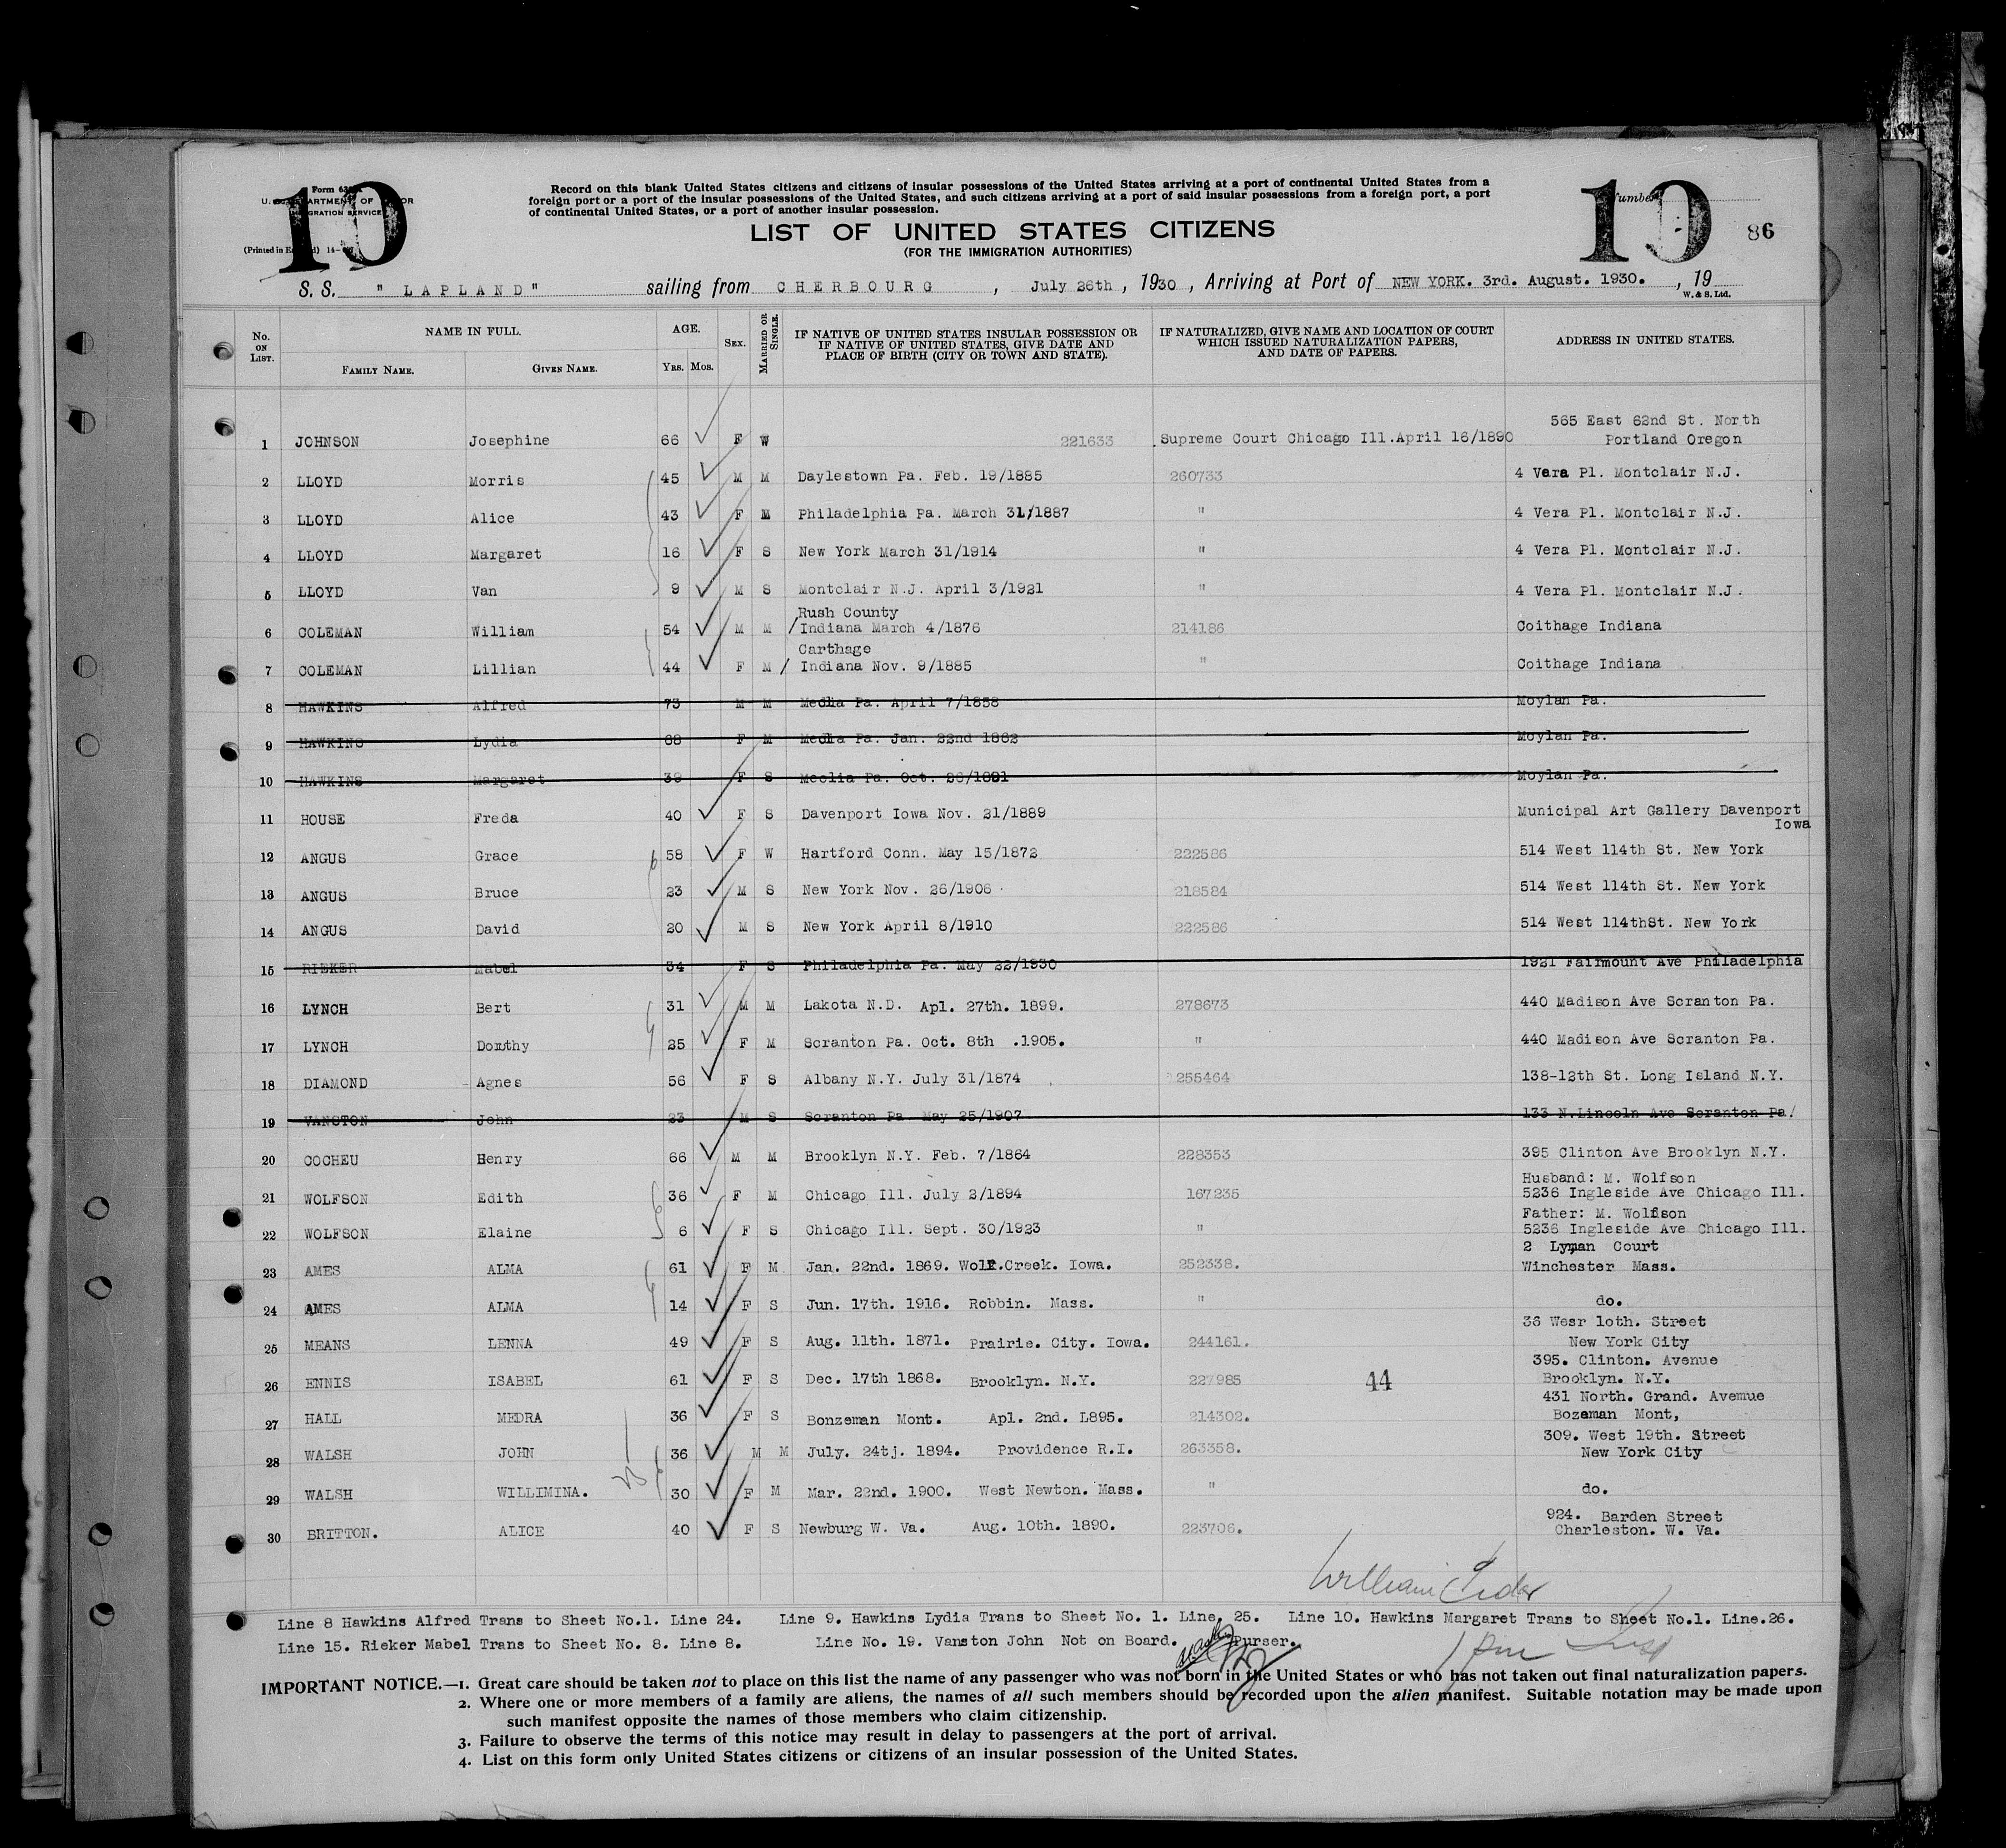 10
Form 630
U. S. DEPARTMENT OF LABOR
IMMIGRATION SERVICE
(Printed in England) 14—
Record on this blank United States citizens and citizens of insular possessions of the United States arriving at a port of continental United States from a
foreign port or a port of the insular possessions of the United States, and such citizens arriving at a port of said insular possessions from a foreign port, a port
of continental United States, or a port of another insular possession.
Number
10
86
LIST OF UNITED STATES CITIZENS
(FOR THE IMMIGRATION AUTHORITIES)
S. S. "LAPLAND" sailing from CHERBOURG, July 26th, 1930, Arriving at Port of NEW YORK. 3rd. August. 1930., 19
W. & S. Ltd.
No. ON LIST. NAME IN FULL. AGE. SEX. MARRIED OR SINGLE. IF NATIVE OF UNITED STATES INSULAR POSSESSION OR IF NATIVE OF UNITED STATES, GIVE DATE AND PLACE OF BIRTH (CITY OR TOWN AND STATE). IF NATURALIZED, GIVE NAME AND LOCATION OF COURT WHICH ISSUED NATURALIZATION PAPERS, AND DATE OF PAPERS. ADDRESS IN UNITED STATES.
FAMILY NAME. GIVEN NAME. YRS. MOS.
565 East 62nd St. North
1 JOHNSON Josephine 66 F W 221633 Supreme Court Chicago Ill.April 16/1890 Portland Oregon
2 LLOYD Morris 45 M M Daylestown Pa. Feb. 19/1885 260733 4 Vera Pl. Montclair N.J.
3 LLOYD Alice 43 F M Philadelphia Pa. March 31/1887 " 4 Vera Pl. Montclair N.J.
4 LLOYD Margaret 16 F S New York March 31/1914 " 4 Vera Pl. Montclair N.J.
5 LLOYD Van 9 M S Montclair N.J. April 3/1921 " 4 Vera Pl. Montclair N.J.
Rush County
6 COLEMAN William 54 M M Indiana March 4/1876 214186 Coithage Indiana
Carthage
7 COLEMAN Lillian 44 F M Indiana Nov. 9/1885 " Coithage Indiana
8 HAWKINS Alfred 73 M M Media Pa. April 7/1858 Moylan Pa.
9 HAWKINS Lydia 68 F M Media Pa. Jan. 22nd 1862 Moylan Pa.
10 HAWKINS Margaret 39 F S Meolia Pa. Oct. 26/1891 Moylan Pa.
11 HOUSE Freda 40 F S Davenport Iowa Nov. 21/1889 Municipal Art Gallery Davenport
Iowa
12 ANGUS Grace 58 F W Hartford Conn. May 15/1872 222586 514 West 114th St. New York
13 ANGUS Bruce 23 M S New York Nov. 26/1906 218584 514 West 114th St. New York
14 ANGUS David 20 M S New York April 8/1910 222586 514 West 114thSt. New York
15 RIEKER Mabel 34 F S Philadelphia Pa. May 22/1930 1921 Fairmount Ave Philadelphia
16 LYNCH Bert 31 M M Lakota N.D. Apl. 27th. 1899. 278673 440 Madison Ave Scranton Pa.
17 LYNCH Dorothy 25 F M Scranton Pa. Oct. 8th .1905. " 440 Madison Ave Scranton Pa.
18 DIAMOND Agnes 56 F S Albany N.Y. July 31/1874 255464 138-12th St. Long Island N.Y.
19 VANSTON John 23 M S Scranton Pa May 25/1907 133 N.Lincoln Ave Scranton Pa.
20 COCHEU Henry 66 M M Brooklyn N.Y. Feb. 7/1864 228353 395 Clinton Ave Brooklyn N.Y.
Husband: M. Wolfson
21 WOLFSON Edith 36 F M Chicago Ill. July 2/1894 167235 5236 Ingleside Ave Chicago Ill.
Father: M. Wolfson
22 WOLFSON Elaine 6 F S Chicago Ill. Sept. 30/1923 " 5236 Ingleside Ave Chicago Ill.
2 Lyman Court
23 AMES ALMA 61 F M Jan. 22nd. 1869. Wolf.Creek. Iowa. 252338. Winchester Mass.
24 AMES ALMA 14 F S Jun. 17th. 1916. Robbin. Mass. " do.
36 Wesr 10th. Street
25 MEANS LENNA 49 F S Aug. 11th. 1871. Prairie. City. Iowa. 244161. New York City
395. Clinton. Avenue
26 ENNIS ISABEL 61 F S Dec. 17th 1868. Brooklyn. N.Y. 227985 44 Brooklyn. N.Y.
431 North. Grand. Avemue
27 HALL MEDRA 36 F S Bonzeman Mont. Apl. 2nd. L895. 214302. Bozeman Mont,
309. West 19th. Street
28 WALSH JOHN 36 M M July. 24tj. 1894. Providence R.I. 263358. New York City
29 WALSH WILLIMINA. 30 F M Mar. 22nd. 1900. West Newton. Mass. " do.
924. Barden Street
30 BRITTON. ALICE 40 F S Newburg W. Va. Aug. 10th. 1890. 223706. Charleston. W. Va.
Line 8 Hawkins Alfred Trans to Sheet No.1. Line 24. Line 9. Hawkins Lydia Trans to Sheet No. 1. Line, 25. Line 10. Hawkins Margaret Trans to Sheet No.1. Line.26.
Line 15. Rieker Mabel Trans to Sheet No. 8. Line 8. Line No. 19. Vanston John Not on Board. Purser.
IMPORTANT NOTICE.—1. Great care should be taken not to place on this list the name of any passenger who was not born in the United States or who has not taken out final naturalization papers.
2. Where one or more members of a family are aliens, the names of all such members should be recorded upon the alien manifest. Suitable notation may be made upon
such manifest opposite the names of those members who claim citizenship.
3. Failure to observe the terms of this notice may result in delay to passengers at the port of arrival.
4. List on this form only United States citizens or citizens of an insular possession of the United States.